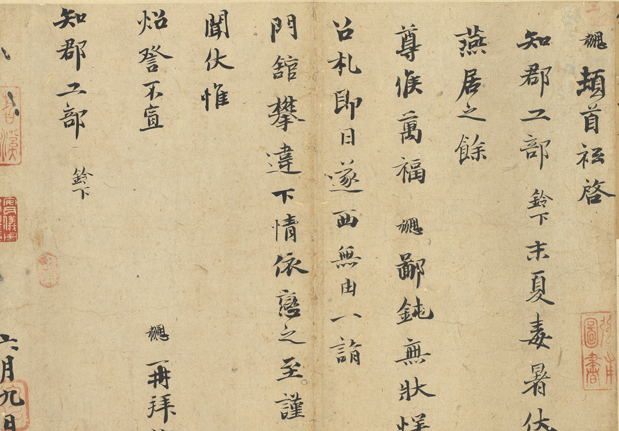 勰頓首祗啓
知郡工部鈴下末夏毒暑伏
燕居之餘
尊候萬福勰鄙鈍無狀
召札即日遂西無由一詣
門舘攀違下情依戀之至謹
聞伏惟
炤詧不宣
勰再拜
知郡工部鈴下
六月九日